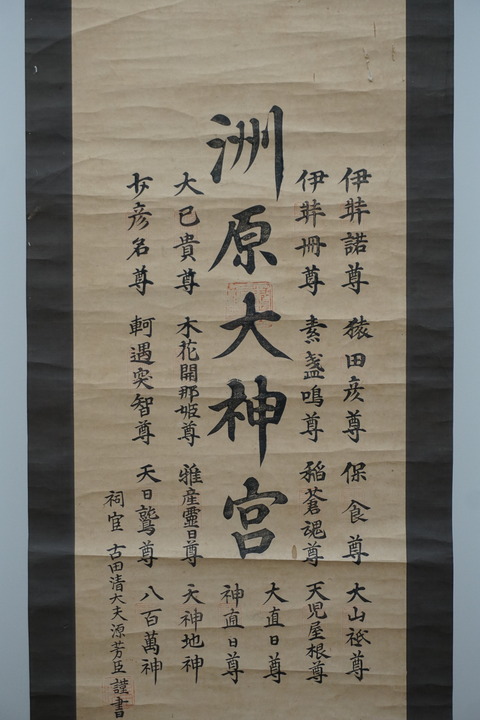 伊弉諾尊 猿田彦尊 保食尊 大山祗尊
伊弉冊尊 素盞鳴尊 稲蒼魂尊 天児屋根尊
大直日尊
洲原大神宮
神直日尊
大已貴尊 木花開那姫尊 雅産靈日尊 天神地神
少彦名尊 軻遇突智尊 天日鷲尊 八百萬神
祠官 古田清大夫源芳臣謹書